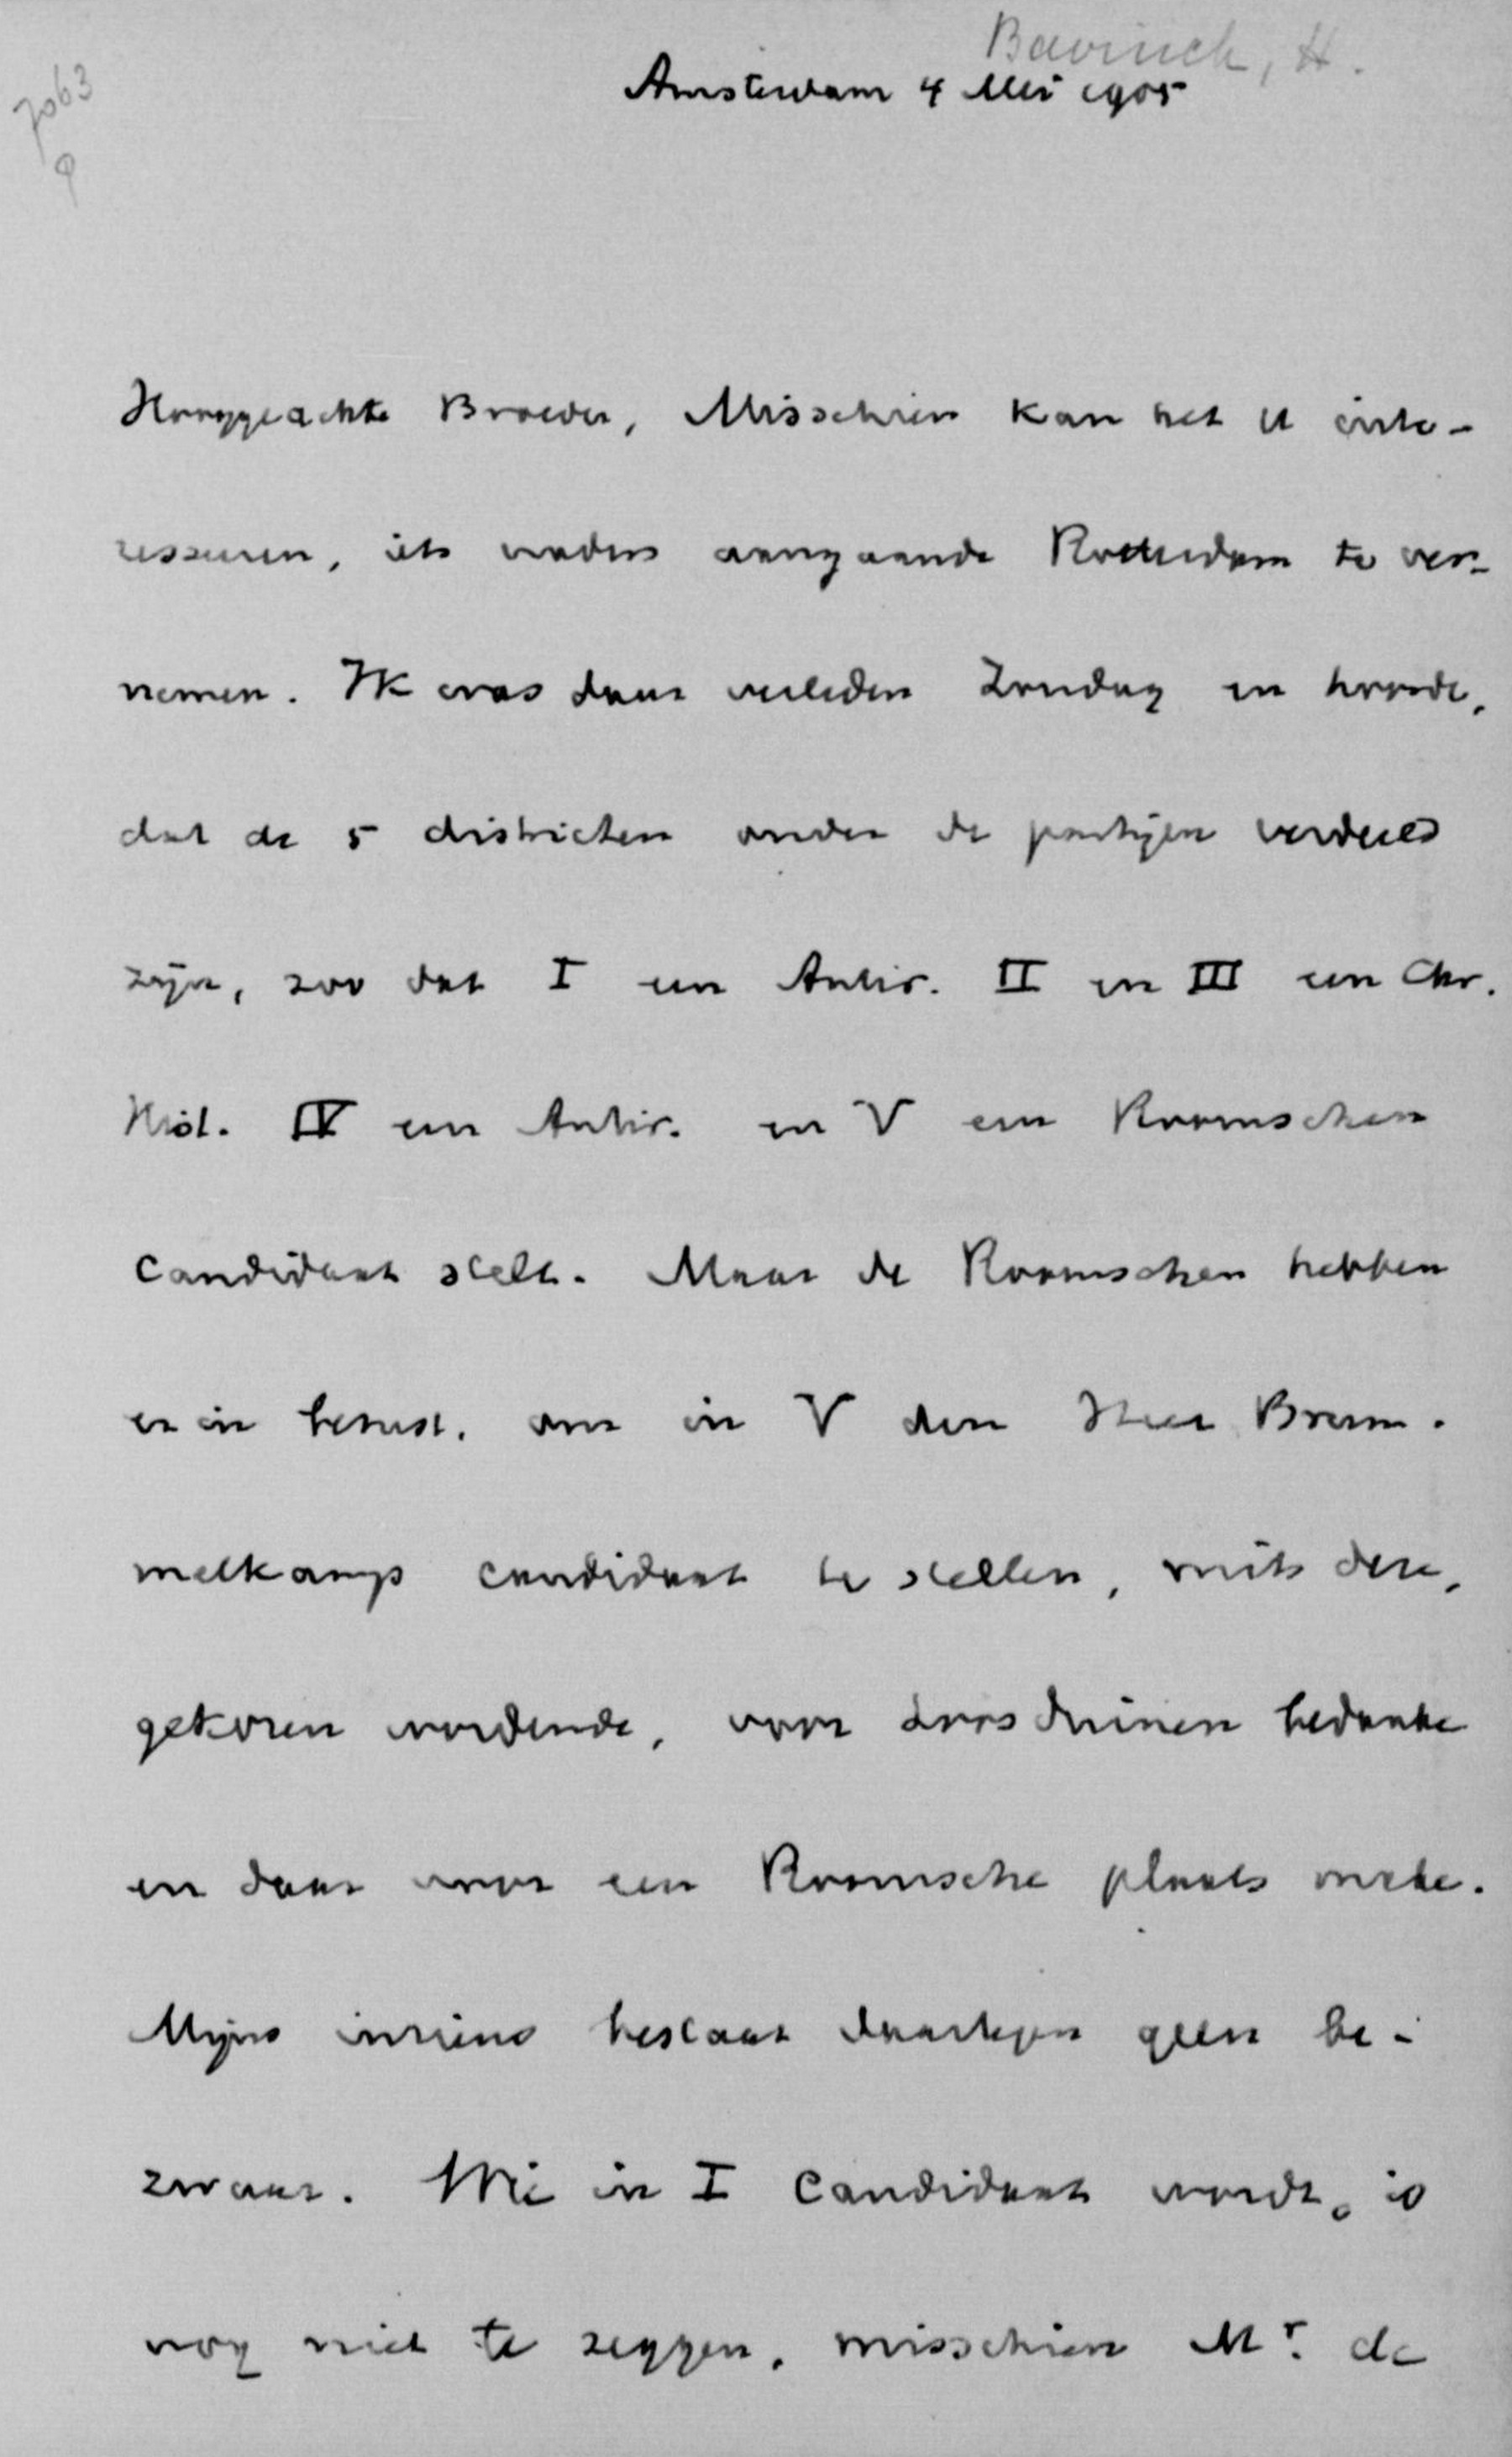 7063
Bavinck, H.
Amsterdam 4 Mei 1905
Hooggeachte Broeder, Misschien kan het U inte-
resseeren, iets naders aangaande Rotterdam te ver-
nemen. Ik was daar verleden Zondag en hoorde,
dat de 5 districten onder de partijen verdeeld
zijn, zoo dat I een Antir. II en III een Chr.
Hist. IV een Antir. en V een Roomschen
candidaat stelt. Maar de Roomschen hebben
er in berust, om in V den Heer Brum.
melkamp candidaat te stellen, mits deze,
gekozen wordende, voor Loosduinen bedanke
en daar voor een Roomsche plaats make.
Mijns inziens bestaat daartegen geen be-
zwaar. Wie in I candidaat wordt, is
nog niet te zeggen, misschien Mr. de